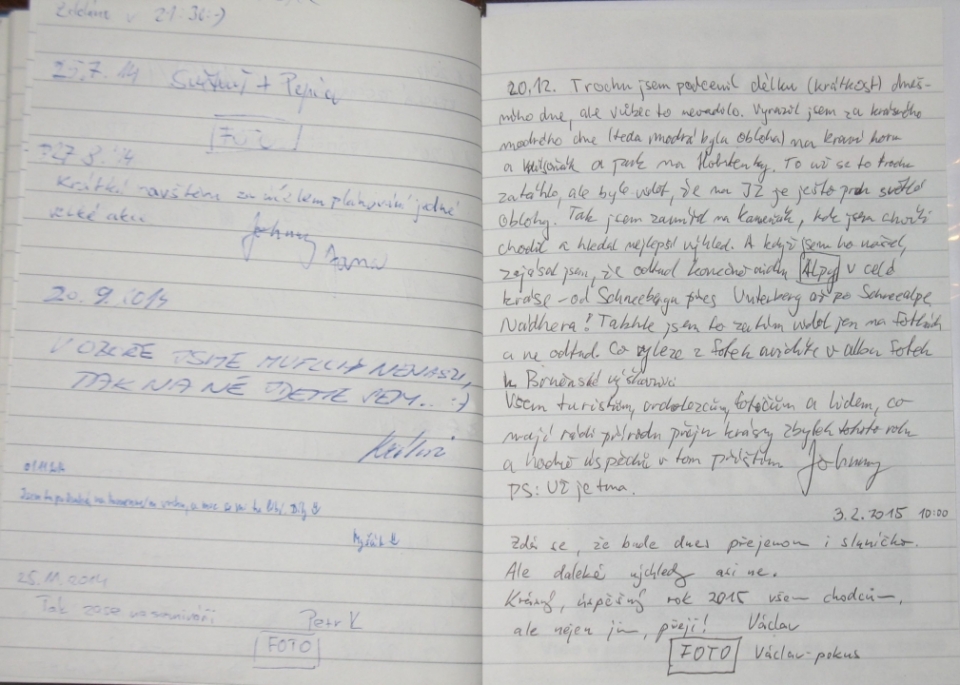 v 21:30 :-)
25.7.14 + Pepíci
FOTO
27.8.14
Krátká návštěva za účelem plánování jedné
velké akce
Johnny
20.9.2014
V OBOŘE JSME MUFLONY NENAŠLI,
TAK NA NĚ JDEME SEM.. :-)
25.11.2014
Tak zase na
Petr K
FOTO
20.12. Trochu jsem podcenil délku (krátkost) dneš-
ního dne, ale vůbec to nevadilo. Vyrazil jsem za krásného
modrého dne (teda modrá byla obloha) na kraví horu
a a pak na Hobtenky. To už se to trochu
zatáhlo, ale bylo vidět, že na JZ je ještě pruh světlé
oblohy. Tak jsem zamířil na kameňák, kde jsem chvíli
chodil a hledal nejlepší výhled. A když jsem ho našel,
zajásal jsem, že odtud konečně vidím Alpy v celé
kráse – od Schneebergu přes Unterberg až po Schneealpe
Nádhera! Takhle jsem to zatím viděl jen na fotkách
a ne odtud. Co vyleze z fotek uvidíte v albu fotek
k Brněnské
Všem turistům, vrcholezcům, fotičům a lidem, co
mají rádi přírodu přeju krásný zbytek tohoto roku
a hodně úspěchů v tom příštím Johnny
PS: Už je tma.
3.2.2015 10:00
Zdá se, že bude dnes příjemně i sluníčko.
Ale daleké výhledy asi ne.
Krásný, úspěšný rok 2015 všem chodcům,
ale nejen jim, přeji! Václav
FOTO Václav-pokus